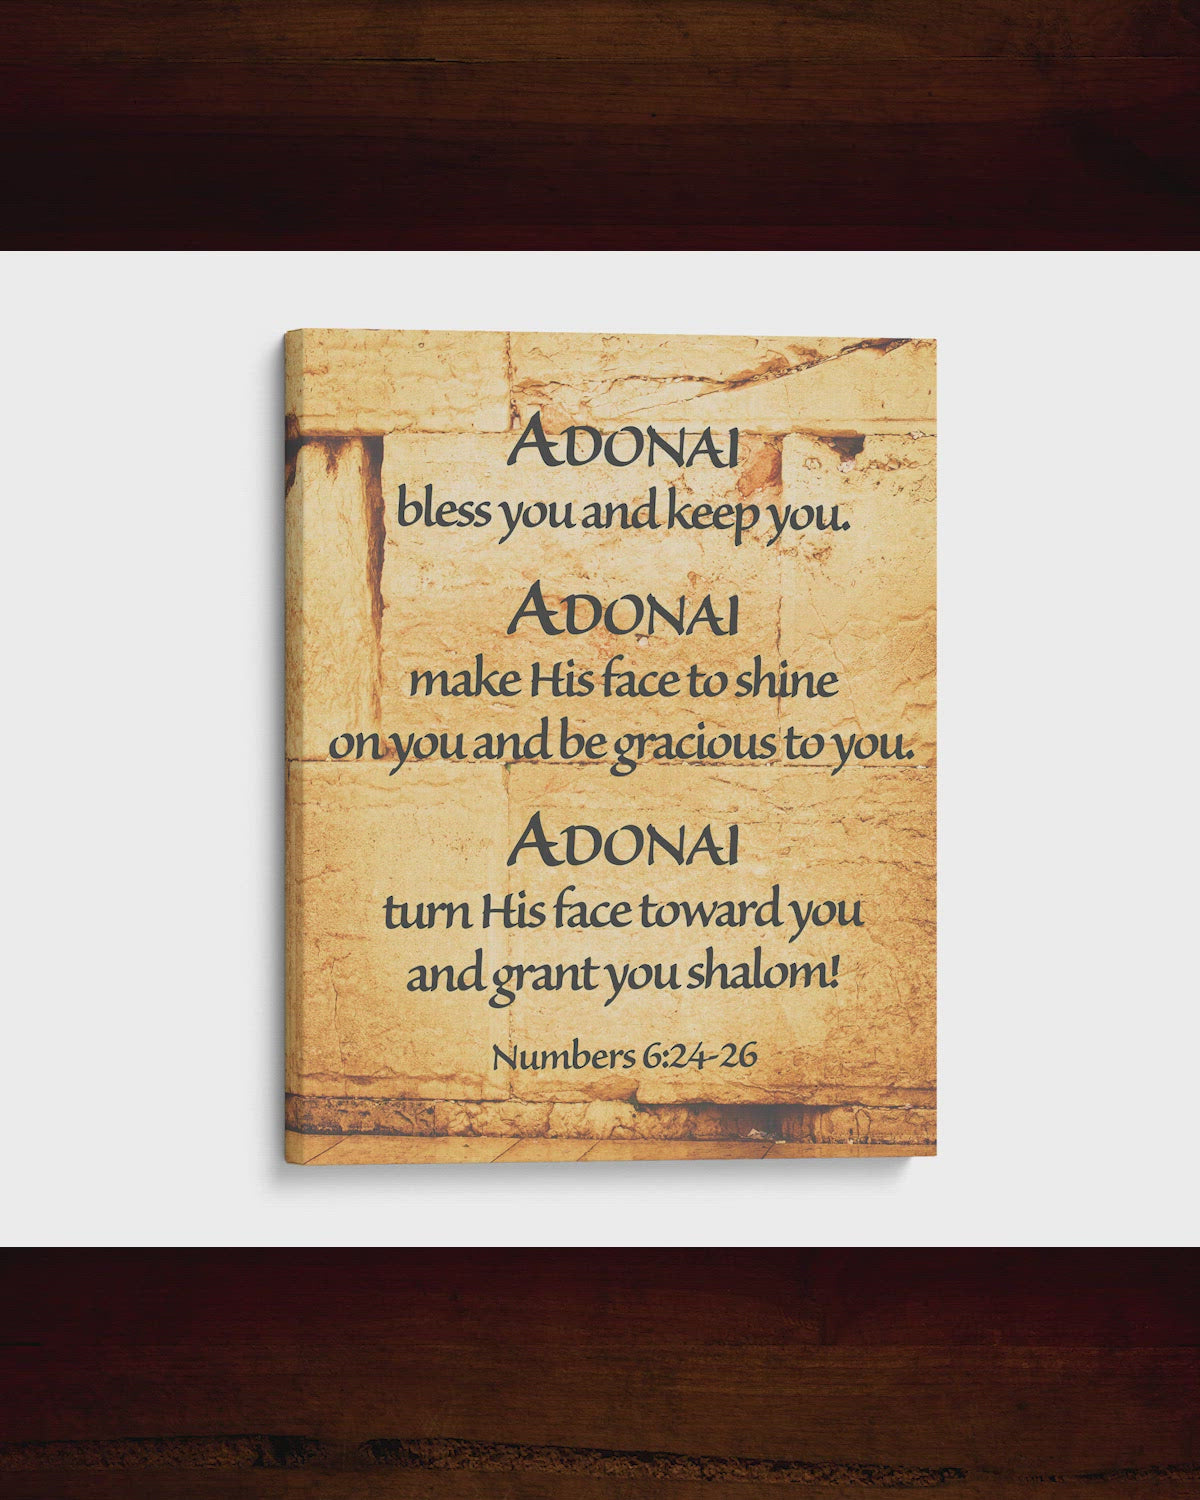 ADONAI
bless you and keep you.
ADONAI
make His face to shine
on you and be gracious to you.
ADONAI
turn His face toward you
and grant you shalom!
Numbers 6:24-26